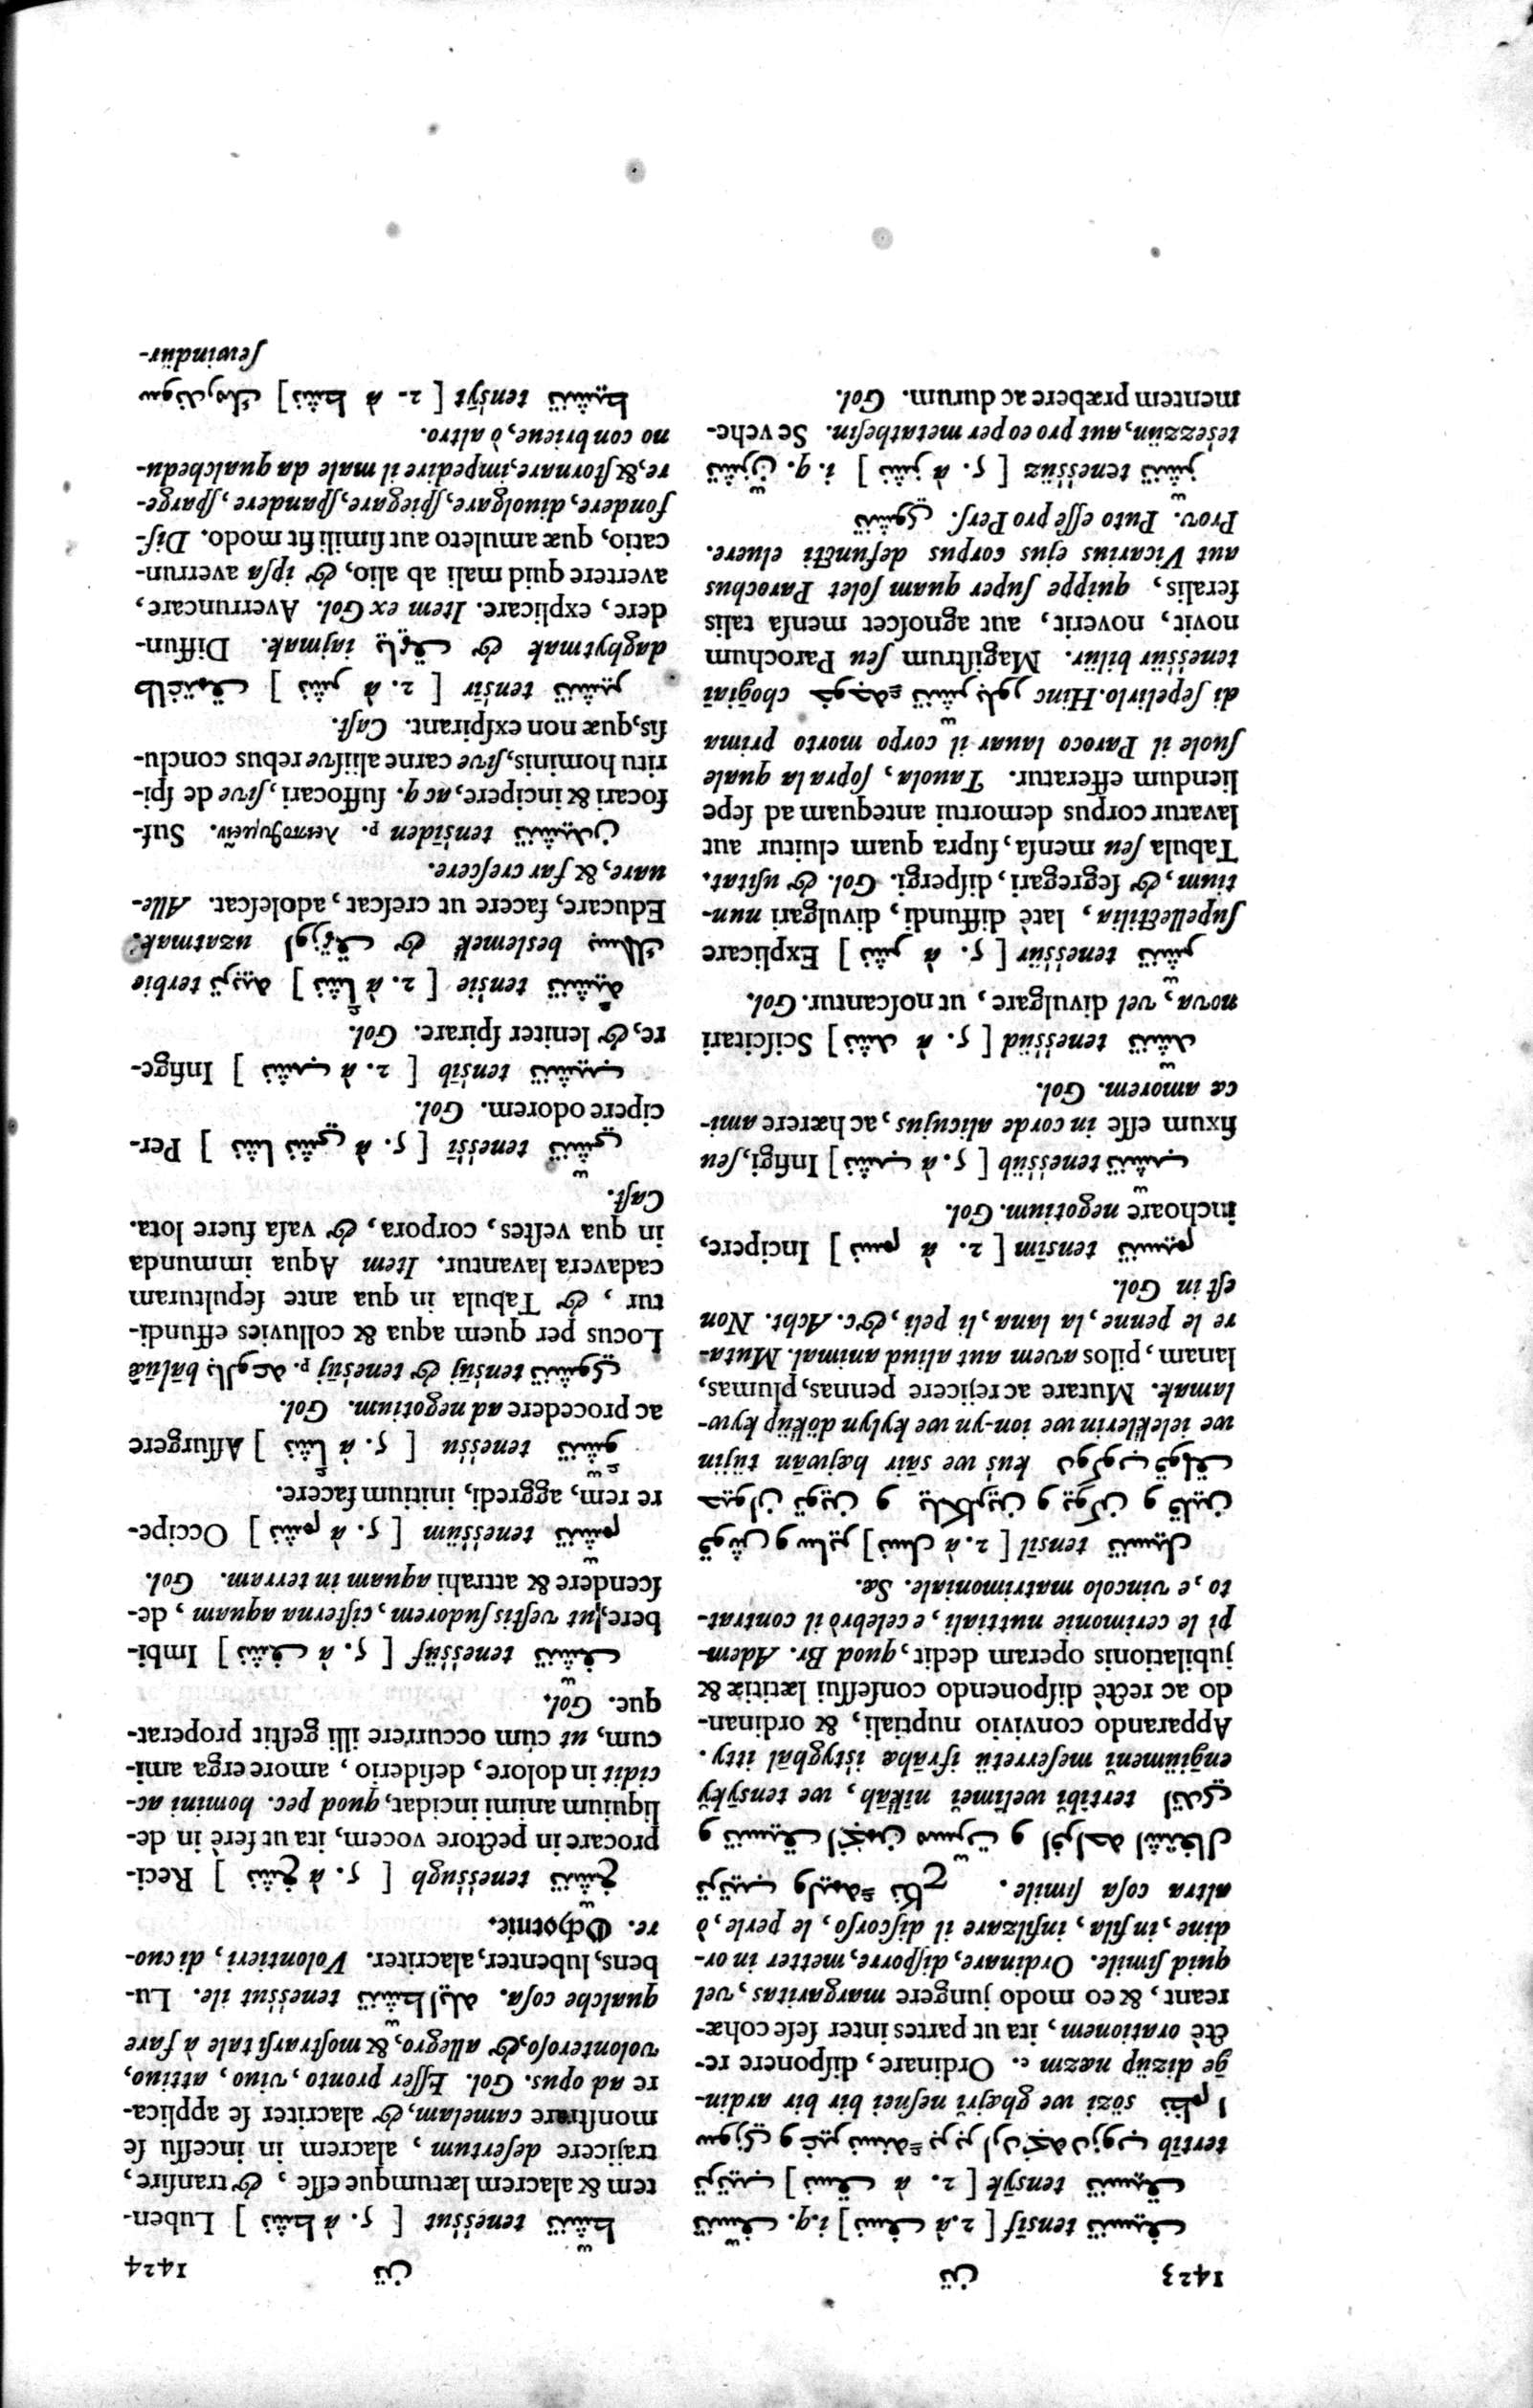 1423 تن
تنسيف tensīf [2. à نسف] i.q. تنسّف
تنسيق tensyk [2. à نسق] ترتيب
tertīb سوزي و غيري نسنه‌يي بر بر اردنجه دزوب
نظم ا sözi we ghæjri nesnei bir bir ardin-
ge dizüp næzm e. Ordinare, disponere re-
ctè orationem, ita ut partes inter sese cohæ-
reant, & eo modo jungere margaritas, vel
quid simile. Ordinare, disporre, metter in or-
dine, in fila, infilzare il discorso, le perle, ò
altra cosa simile. ترتيب وليمه‌ء نكاح
و تنسيق انجمن مسرّت و افراحه اشتغال
ايتدي tertibi welimei nikāh, we tensykÿ
engiümeni meserretü ifrāhæ istyghāl itty.
Apparando convivio nuptiali, & ordinan-
do ac rectè disponendo consessui lætitiæ &
jubilationis operam dedit, quod Br. Adem-
pì le cerimonie nuttiali, e celebrò il contrat-
to, e vincolo matrimoniale. Sæ.
تنسيل tensīl [2. à نسل] قوش و ساير
حيوان توين و يلكلرين و يوكن و قيلين
دوكوب قيولمق kuš we sāir hæjwān tüjin
we ieleklerin we ion-yn we kylyn döküp kyw-
lamak. Mutare ac rejicere pennas, plumas,
lanam, pilos avem aut aliud animal. Muta-
re le penne, la lana, li peli, &c. Acht. Non
est in Gol.
تنسيم tensīm [2. à نسم] Incipere,
inchoare negotium. Gol.
تنشّب teneššüb [5. à نشب] Infigi, seu
fixum esse in corde alicujus, ac hærere ami-
ca amorem. Gol.
تنشّد teneššüd [5. à نشد] Sciscitari
nova, vel divulgare, ut noscantur. Gol.
تنشّر teneššür [5. à نشر] Explicare
supellectilia, latè diffundi, divulgari nun-
tium, & segregari, dispergi. Gol. & usitat.
Tabula seu mensa, supra quam eluitur aut
lavatur corpus demortui antequam ad sepe
liendum efferatur. Tauola, sopra la quale
suole il Paroco lauar il corpo morto prima
di sepelirlo. Hinc خوجه‌يي تنشّر بلور chogiaï
teneššür bilür. Magistrum seu Parochum
novit, noverit, aut agnoscet mensa talis
feralis, quippe super quam solet Parochus
aut Vicarius ejus corpus defuncti eluere.
Prov. Puto esse pro Pers. تنشوي
تنشّز teneššüz [5. à نشز] i. q. تشزّن
tešezzün, aut pro eo per metathesin. Se vehe-
mentem præbere ac durum. Gol.
تن 1424
تنشّط teneššut [5. à نشط] Luben-
tem & alacrem lætumque esse, & transire,
trajicere desertum, alacrem in incessu se
monstrare camelam, & alacriter se applica-
re ad opus. Gol. Esser pronto, vino, attiuo,
volonteroso, & allegro, & mostrarsi tale à fare
qualche cosa. تنشّط ايله teneššut ile. Lu-
bens, lubenter, alacriter. Volontieri, di cuo-
re. Odjotnie.
تنشّغ teneššugh [5. à نشغ] Reci-
procare in pectore vocem, ita ut ferè in de-
liquium animi incidat, quod pec. homini ac-
cidit in dolore, desiderio, amore erga ami-
cum, ut cùm occurrere illi gestit properat-
que. Gol.
تنشّف teneššüf [5. à نشف] Imbi-
bere, ut vestis sudorem, cisterna aquam, de-
scendere & attrahi aquam in terram. Gol.
تنشّم teneššüm [5. à نشم] Occipe-
re rem, aggredi, initium facere.
تنشّؤ teneššu [5. à نشأ] Assurgere
ac procedere ad negotium. Gol.
تنشوي tenšüj & tenešüj p. بالوعه bālūæ
Locus per quem aqua & colluvies effundi-
tur, & Tabula in qua ante sepulturam
cadavera lavantur. Item Aqua immunda
in qua vestes, corpora, & vasa fuere lota.
Cast.
تنشّي teneššī [5. à نشي نشا] Per-
cipere odorem. Gol.
تنشيب tenšīb [2. à نشب] Infige-
re, & leniter spirare. Gol.
تنشئة tenšie [2. à نشأ] تربيه terbie
بسلمك beslemek & اوزتمق uzatmak.
Educare, facere ut crescat, adolescat. Alle-
uare, & far crescere.
تنشيدن tenšīden p. λειποθυμεῖν. Suf-
focari & incipere, ac q. suffocari, sive de spi-
ritu hominis, sive carne aliisve rebus conclu-
sis, quæ non exspirant. Cast.
تنشير tenšīr [2. à نشر] طاغتمق
daghytmak & يايمق iajmak. Diffun-
dere, explicare. Item ex Gol. Averruncare,
avertere quid mali ab alio, & ipsa averrun-
catio, quæ amuleto aut simili fit modo. Dif-
fondere, diuolgare, spiegare, spandere, sparge-
re, & stornare, impedire il male da qualchedu-
no con briene, ò altro.
تنشيط tenšyt [2. à نشط] سوندرمك
sewindür-